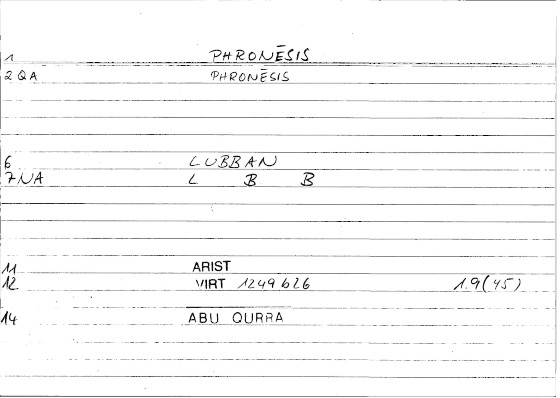 1 PHRONĒSIS
2 QA PHRONĒSIS
6 LUBBAN
7NA L B B
11 ARIST
12 VIRT 1249b26 1.9(45)
14 ABU QURRA